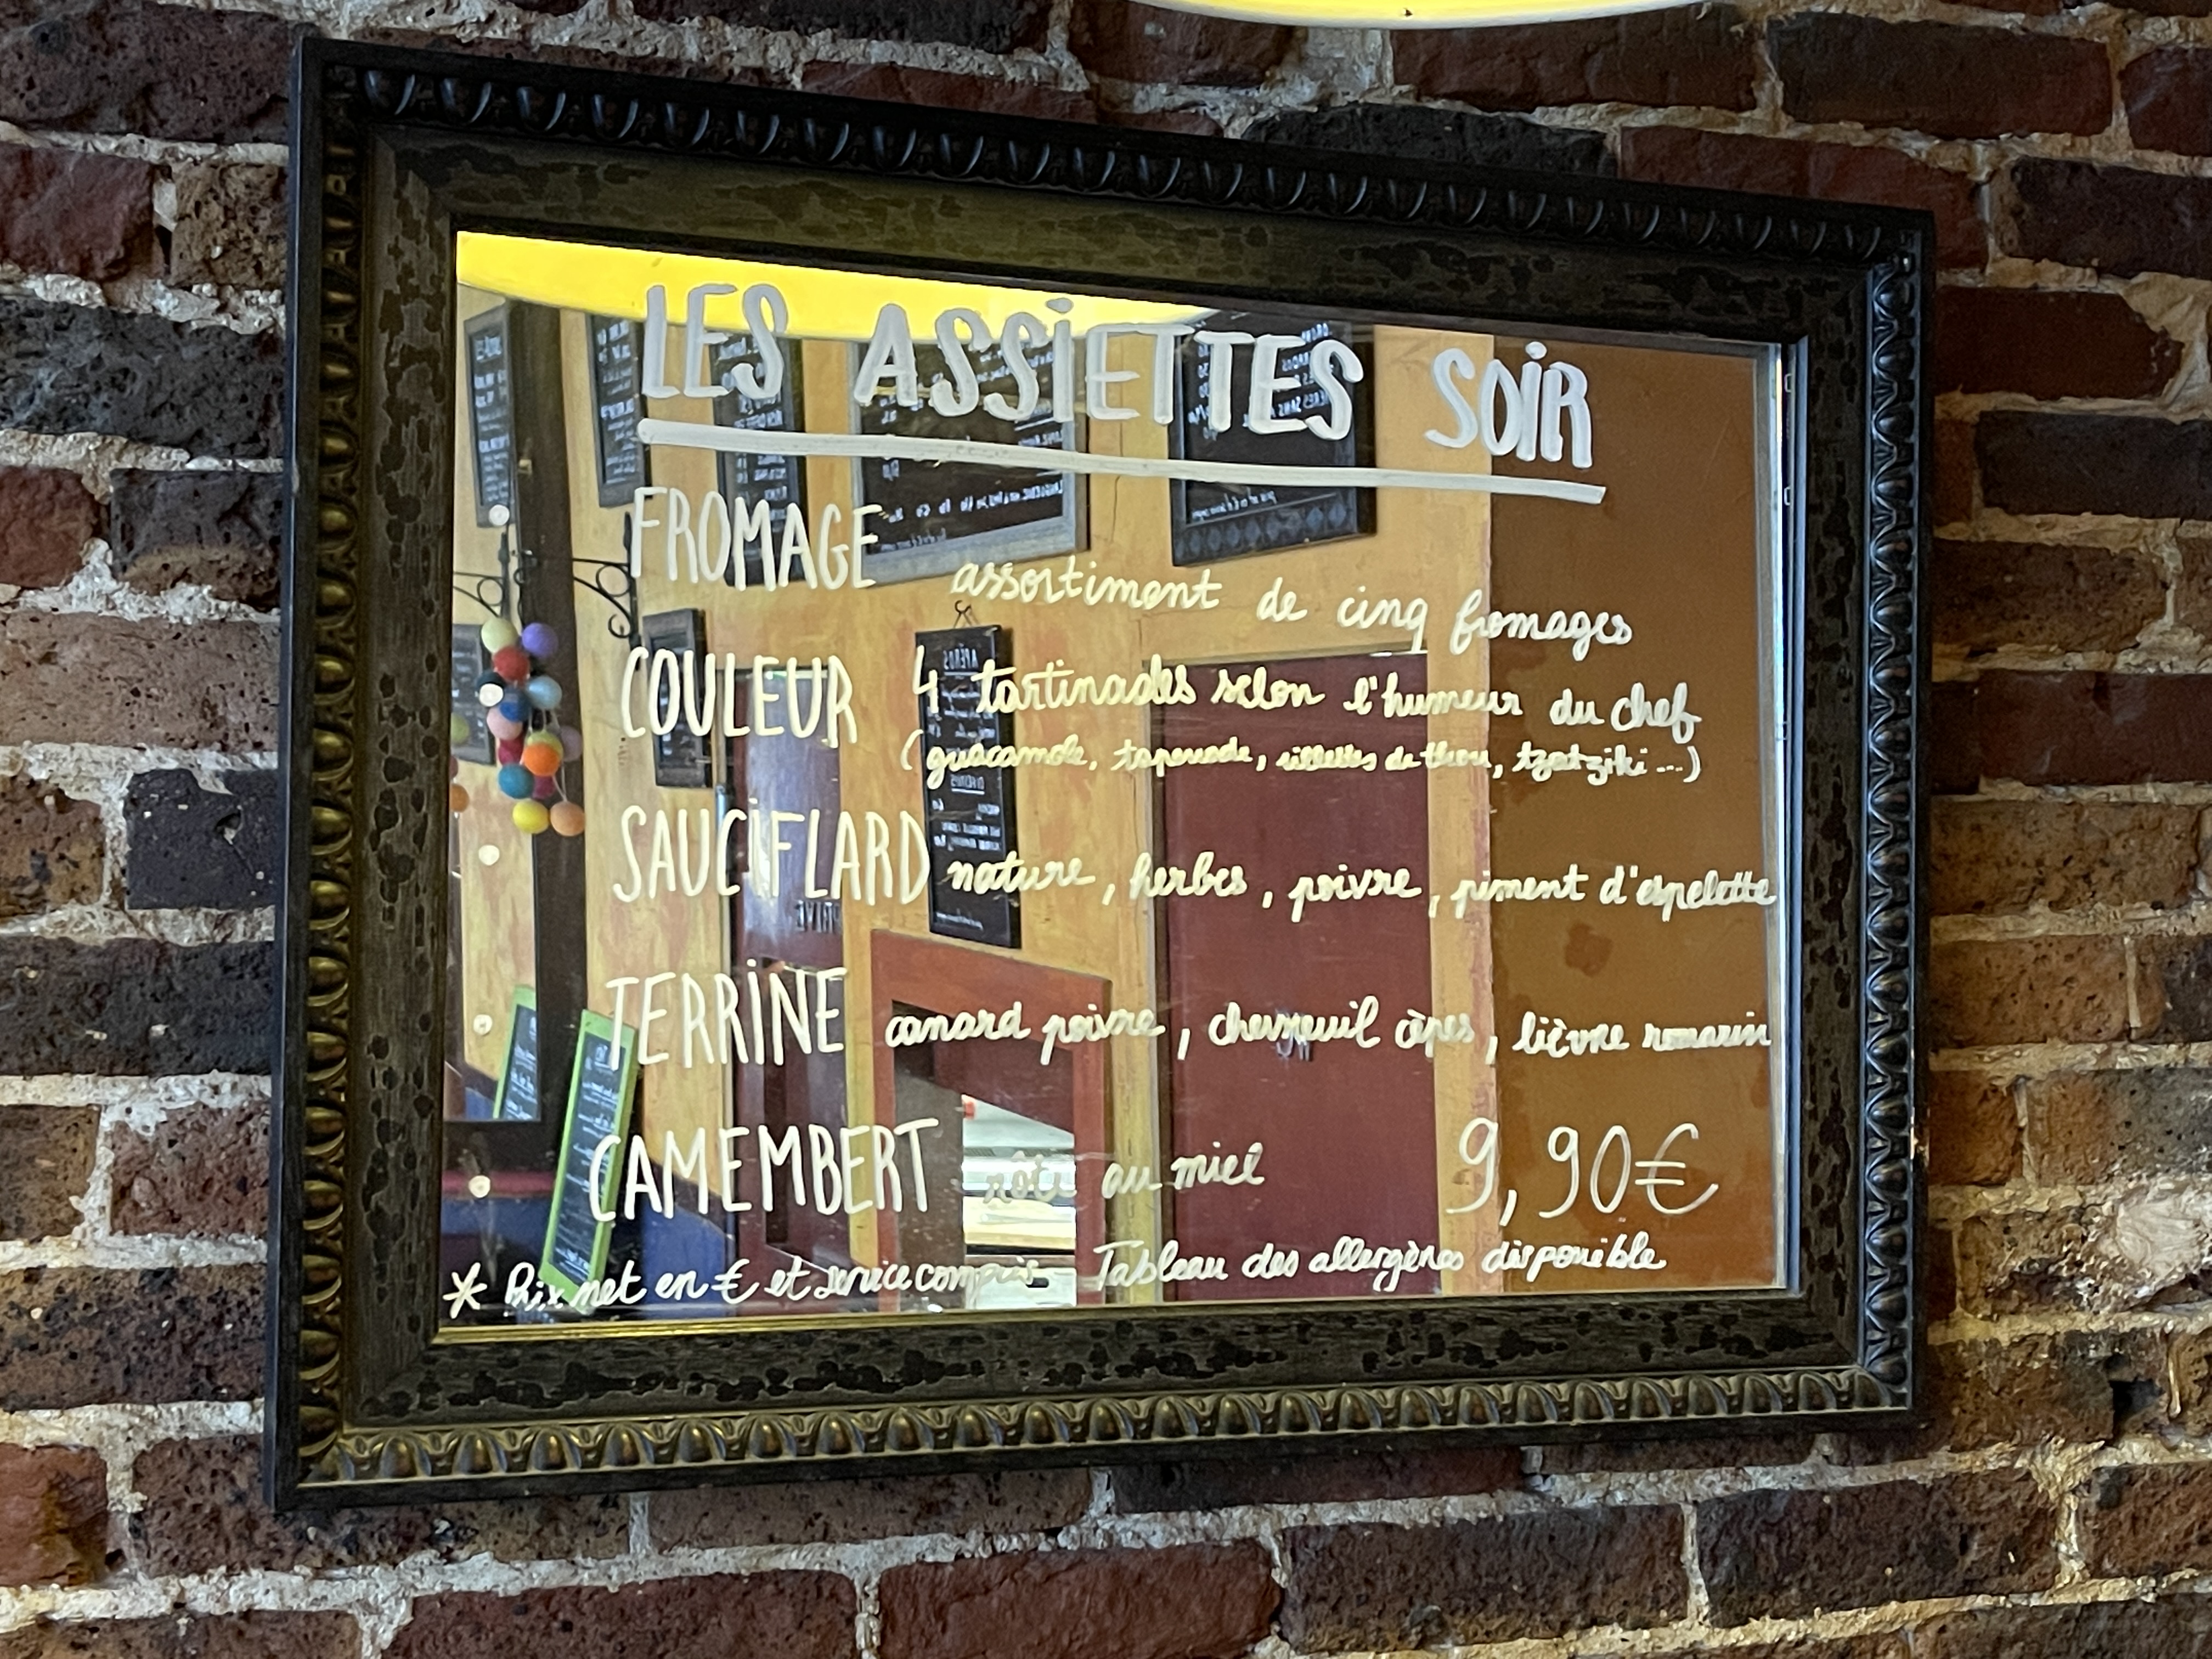 LES ASSIETTES SOIR
FROMAGE assortiment de cinq fromages
COULEUR 4 tartinades selon l'humeur du chef
(guacamole, tapenade, rillettes de thon, tzatziki ...)
SAUCIFLARD nature, herbes, poivre, piment d'espelette
TERRINE canard poivre, chevreuil cèpes, lièvre romarin
CAMEMBERT rôti au miel 9,90€
* Prix net en € et service compris Tableau des allergènes disponible